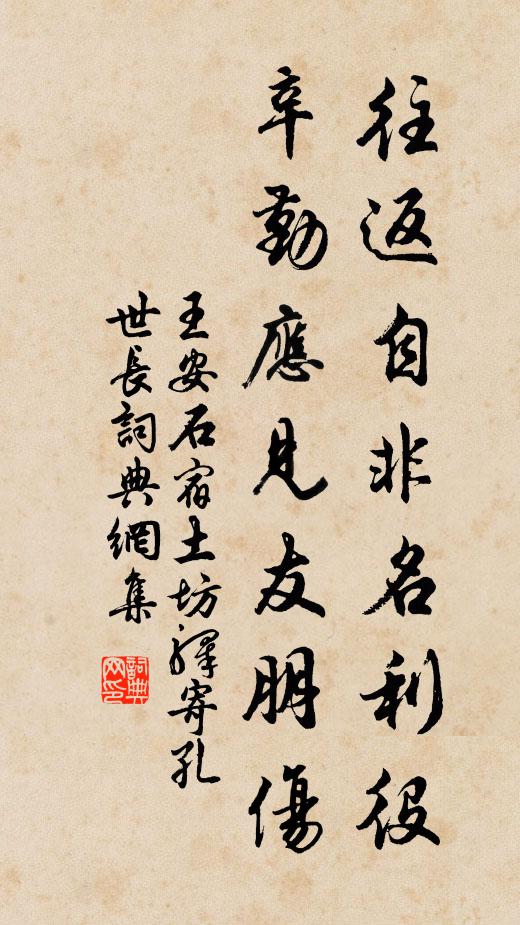 往返自非名利役
辛勤應見友朋傷
王安石宿土坊驛寄孔
世長詞典網集
詞典
网印